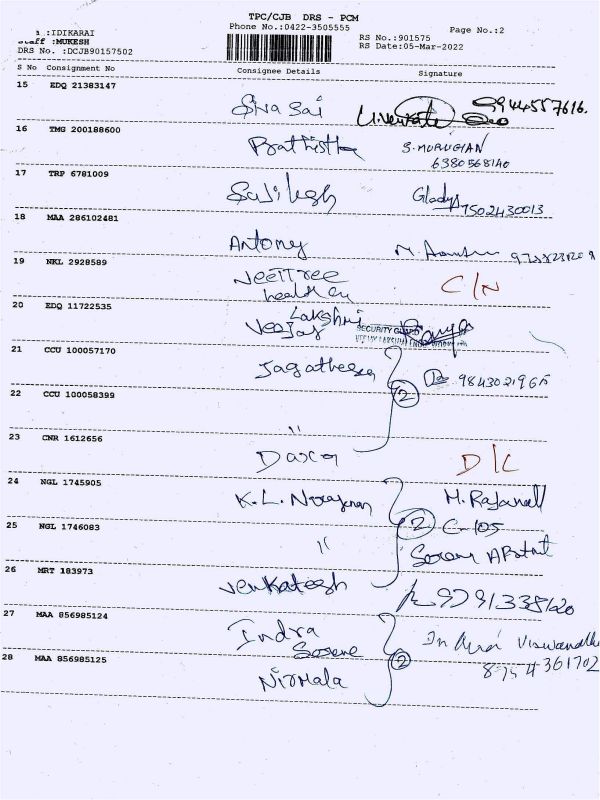 TPC/CJB DRS - PCM
Phone No.:0422-3505555
Page No.:2
:IDIKARAI
Staff :MUKESH
DRS No. :DCJB90157502
RS No.:901575
RS Date:05-Mar-2022
S No Consignment No Consignee Details Signature
15 EDQ 21383147
Siva Sai 9944557616.
16 TMG 200188600
Prathistha S. MURUGIAN
6380568140
17 TRP 6781009
Sailesh Gladys
7502430013
18 MAA 286102481
Antony
19 NKL 2928589
NeelTree C/N
health
20 EDQ 11722535
Lakshmi
Veejay SECURITY
21 CCU 100057170
Jagatheesh 2
22 CCU 100058399
"
23 CNR 1612656
D/L
24 NGL 1745905
K.L. Narayanan
2 C-105
25 NGL 1746083
"
26 MRT 183973
Venkatesh
27 MAA 856985124
Indra
Serene 2
28 MAA 856985125
Nirmala